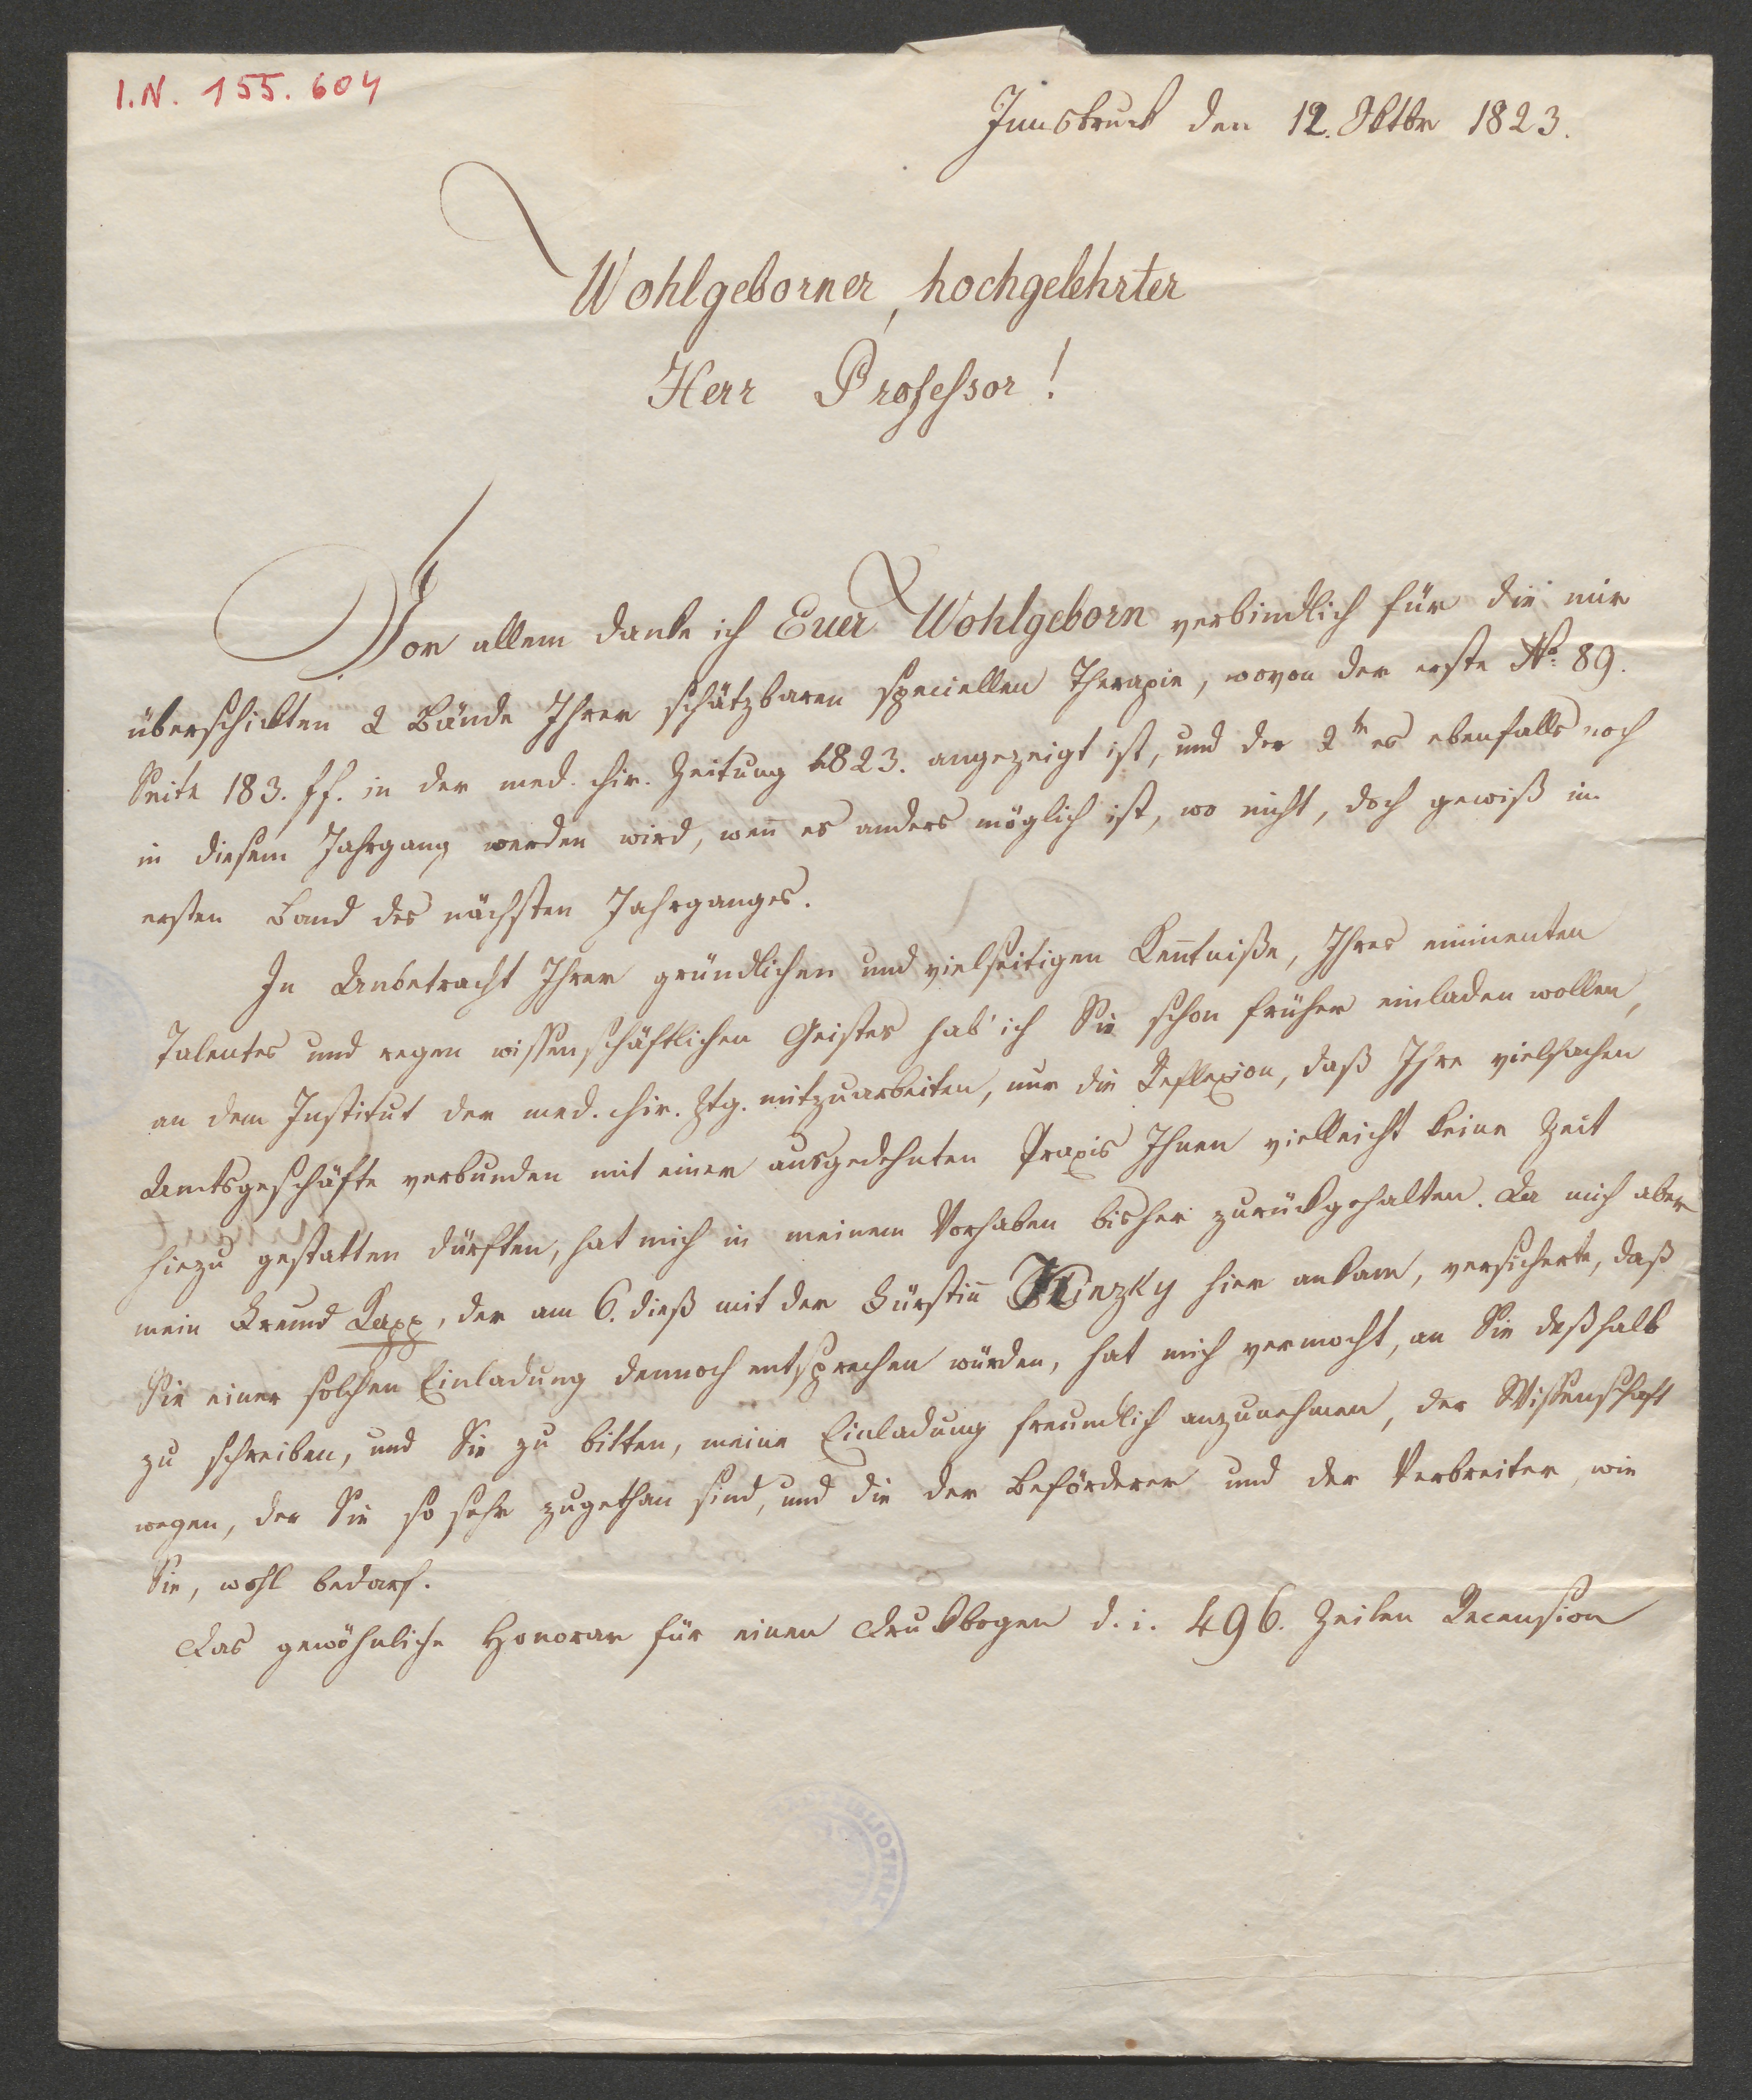 I.N. 155.604
Innsbruck den 12. Oktbr 1823.
Wohlgeborner, hochgelehrter
Herr Professor!
Vor allem danke ich Euer Wohlgeborn verbindlich für die mir
überschikten 2 Bände Ihrer schätzbaren speciellen Therapie, wovon der erste No. 89.
Seite 183. ff. in der med. chir. Zeitung 1823. angezeigt ist, und der 2te es ebenfalls noch
in diesem Jahrgang werden wird, wen̄ es anders möglich ist, wo nicht, doch gewiß im
ersten Band des nächsten Jahrganges.
In Anbetracht Ihrer gründlichen und vielseitigen Ken̄tniße, Ihres eminenten
Talentes und regen wissenschäftlichen Geistes hab' ich Sie schon früher einladen wollen,
an dem Institut der med. chir. Ztg. mitzuarbeiten, nur die Reflexion, daß Ihre vielfachen
Amtsgeschäfte verbunden mit einer ausgedehnten Praxis Ihnen vielleicht keine Zeit
hiezu gestatten dürften, hat mich in meinem Vorhaben bisher zurückgehalten. Da mich aber
mein Freund Kapp, der am 6. dieß mit der Fürstin̄ Kinzky hier ankam, versicherte, daß
Sie einer solchen Einladung dennoch entsprechen würden, hat mich vermocht, an Sie deßhalb
zu schreiben, und Sie zu bitten, meine Einladung freundlich anzunehmen, der Wissenschaft
wegen, der Sie so sehr zugethan sind, und die der Beförderer und der Verbreiter, wie
Sie, wohl bedarf.
Das gewöhnliche Honorar für einen Drukbogen d. i. 496. Zeilen Recension
BIBLIOTHEK